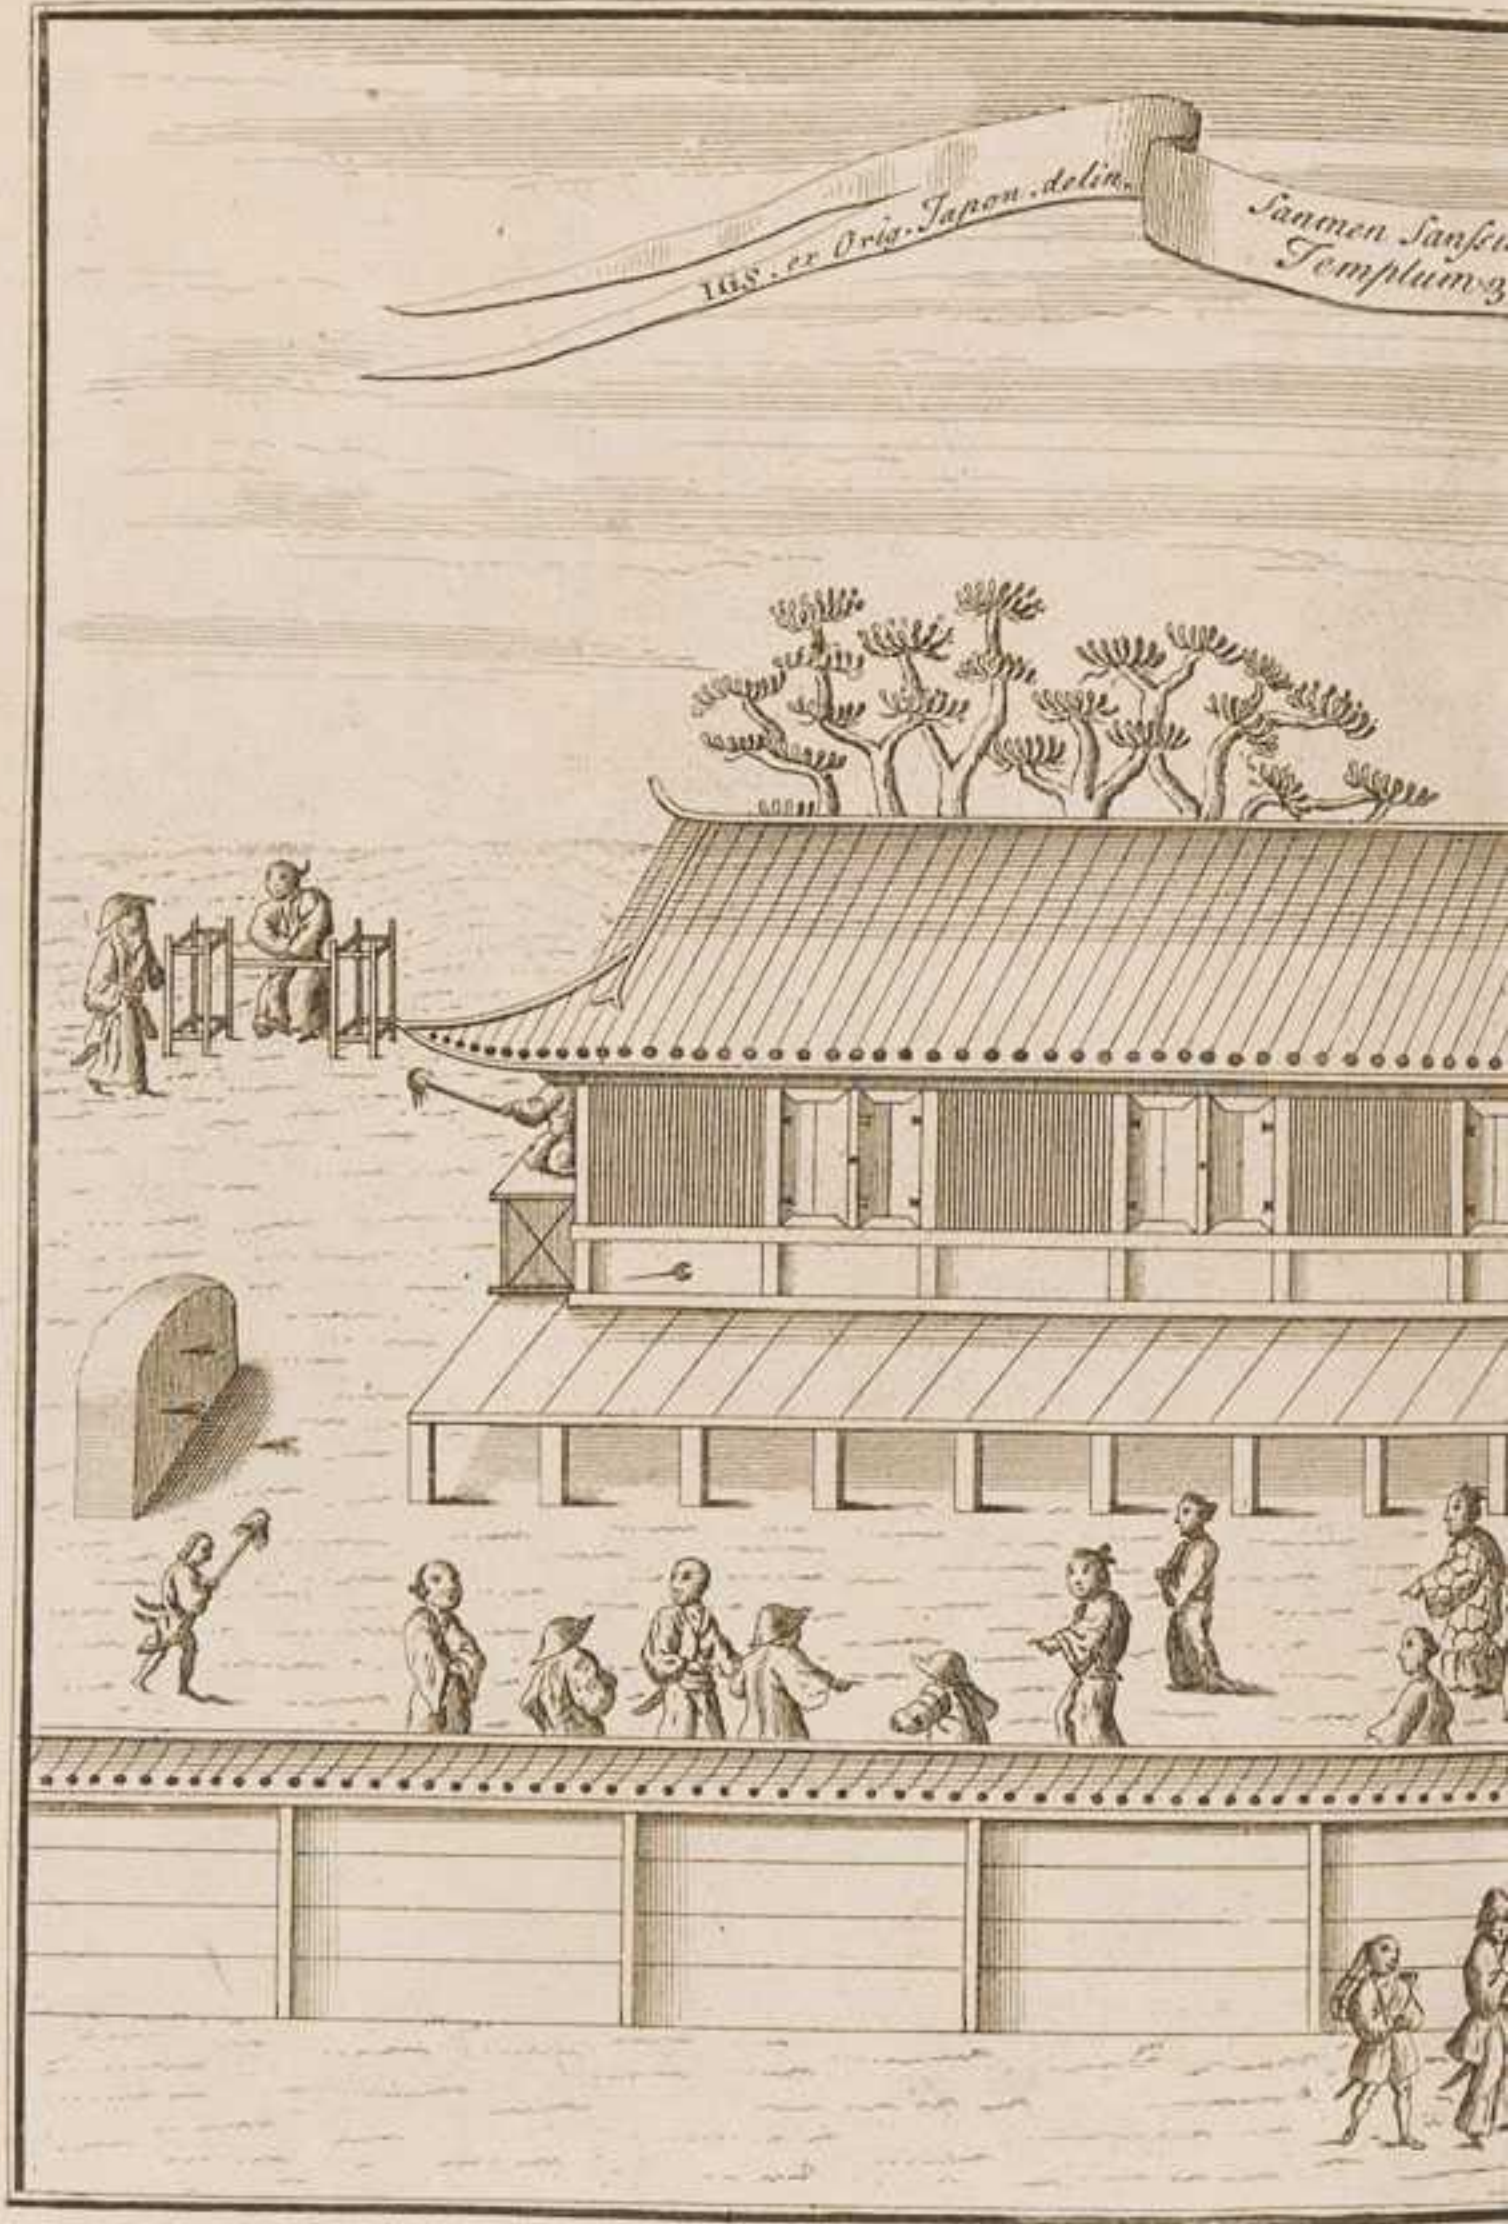 IGS. ex Orig. Japon. delin.
Sanmen
Templum